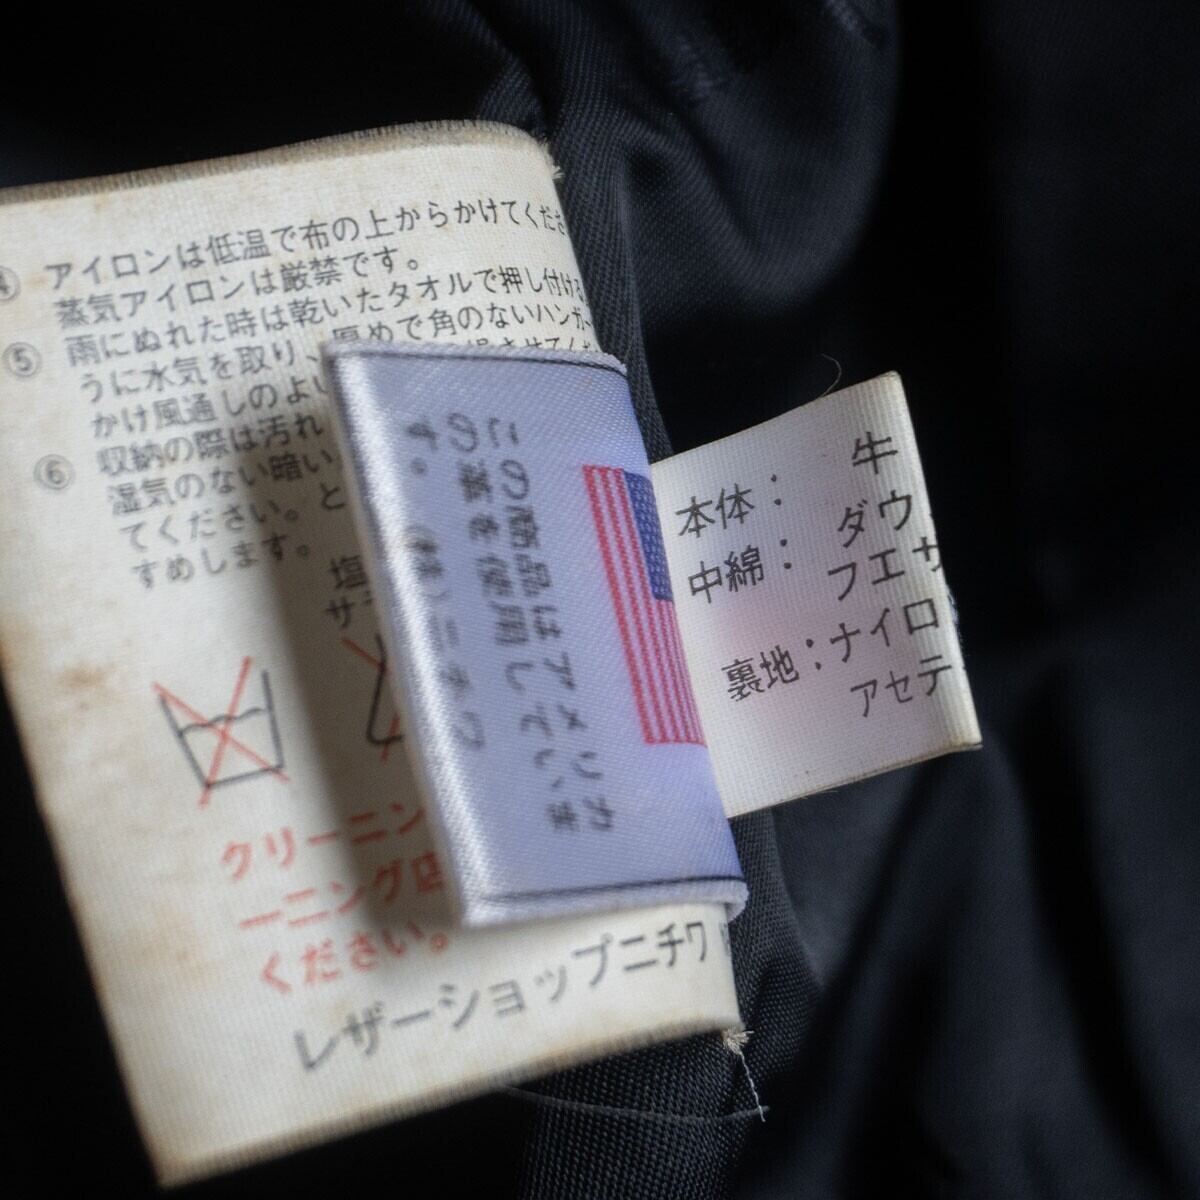 ④ アイロンは低温で布の上からかけてくださ
蒸気アイロンは厳禁です。
⑤ 雨にぬれた時は乾いたタオルで押し付ける
うに水気を取り、厚めで角のないハンガー
かけ風通しのよい
⑥ 収納の際は汚れ
湿気のない暗い
てください。と
すめします。
塩
サ
クリーニン
ーニング店
ください。
レザーショップニチワ
この商品はアメリカ
の革を使用していま
す。(株)ニチワ
本体： 牛
中綿： ダウ
フエサ
裏地：ナイロ
アセテ